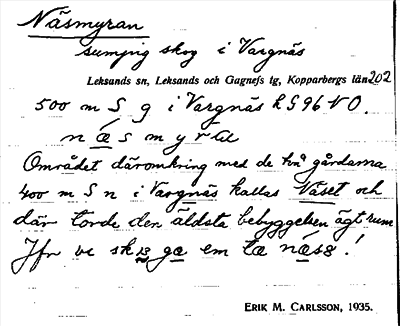 Näsmyran
sumpig skog i Vargnäs
Leksands sn, Leksands och Gagnefs tg, Kopparbergs län 202
500 m S g i Vargnäs k S 96 NO.
næsmyra
Området däromkring med de två gårdarna
400 m S n i Vargnäs kallas Näset och
där torde den äldsta bebyggelsen ägt rum
Jfr ve em næss!
ERIK M. CARLSSON, 1935.